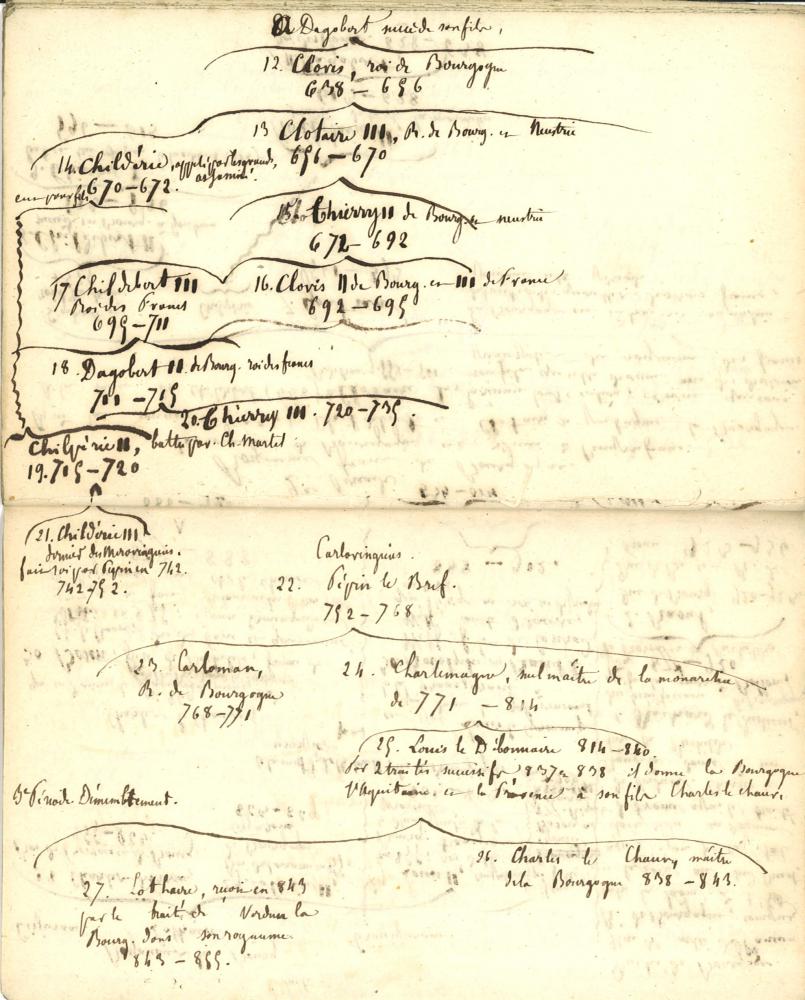 A Dagobert succède son fils,
12. Clovis, roi de Bourgogne
638 – 656
13 Clotaire III, R. de Bourg. et Neustrie
656 – 670
14. Childéric, appelé par les grands,
670 – 672.
eut pour fils
15. Thierry II de Bourg. et neustrie
672 – 692
17 Childebert III
Roi des Francs
695 – 711
16. Clovis II de Bourg. et III de France
692 – 695
18. Dagobert II. de Bourg. roi des francs
711 – 715
20. Thierry III. 720 – 735.
Chilpéric II, battu par Ch. Martel
19. 715 – 720
21. Childéric III
dernier des Mérovingiens.
fait roi par Pepin en 742.
742-752.
Carlovingiens.
22. Pépin le Bref.
752 – 768
23. Carloman,
R. de Bourgogne
768-771
24. Charlemagne, seul maître de la monarchie
de 771 – 814
25. Louis le Débonnaire 814 – 840.
Par 2 traités successifs 837 et 838 il donne la Bourgogne
l'Aquitaine et la Provence à son fils Charles le chauve
3e Période Démembrement.
26. Charles le Chauve, maître
de la Bourgogne 838 – 843.
27. Lothaire, réunit en 843
par le traité de Verdun la
Bourg. dans son royaume.
843 – 855.